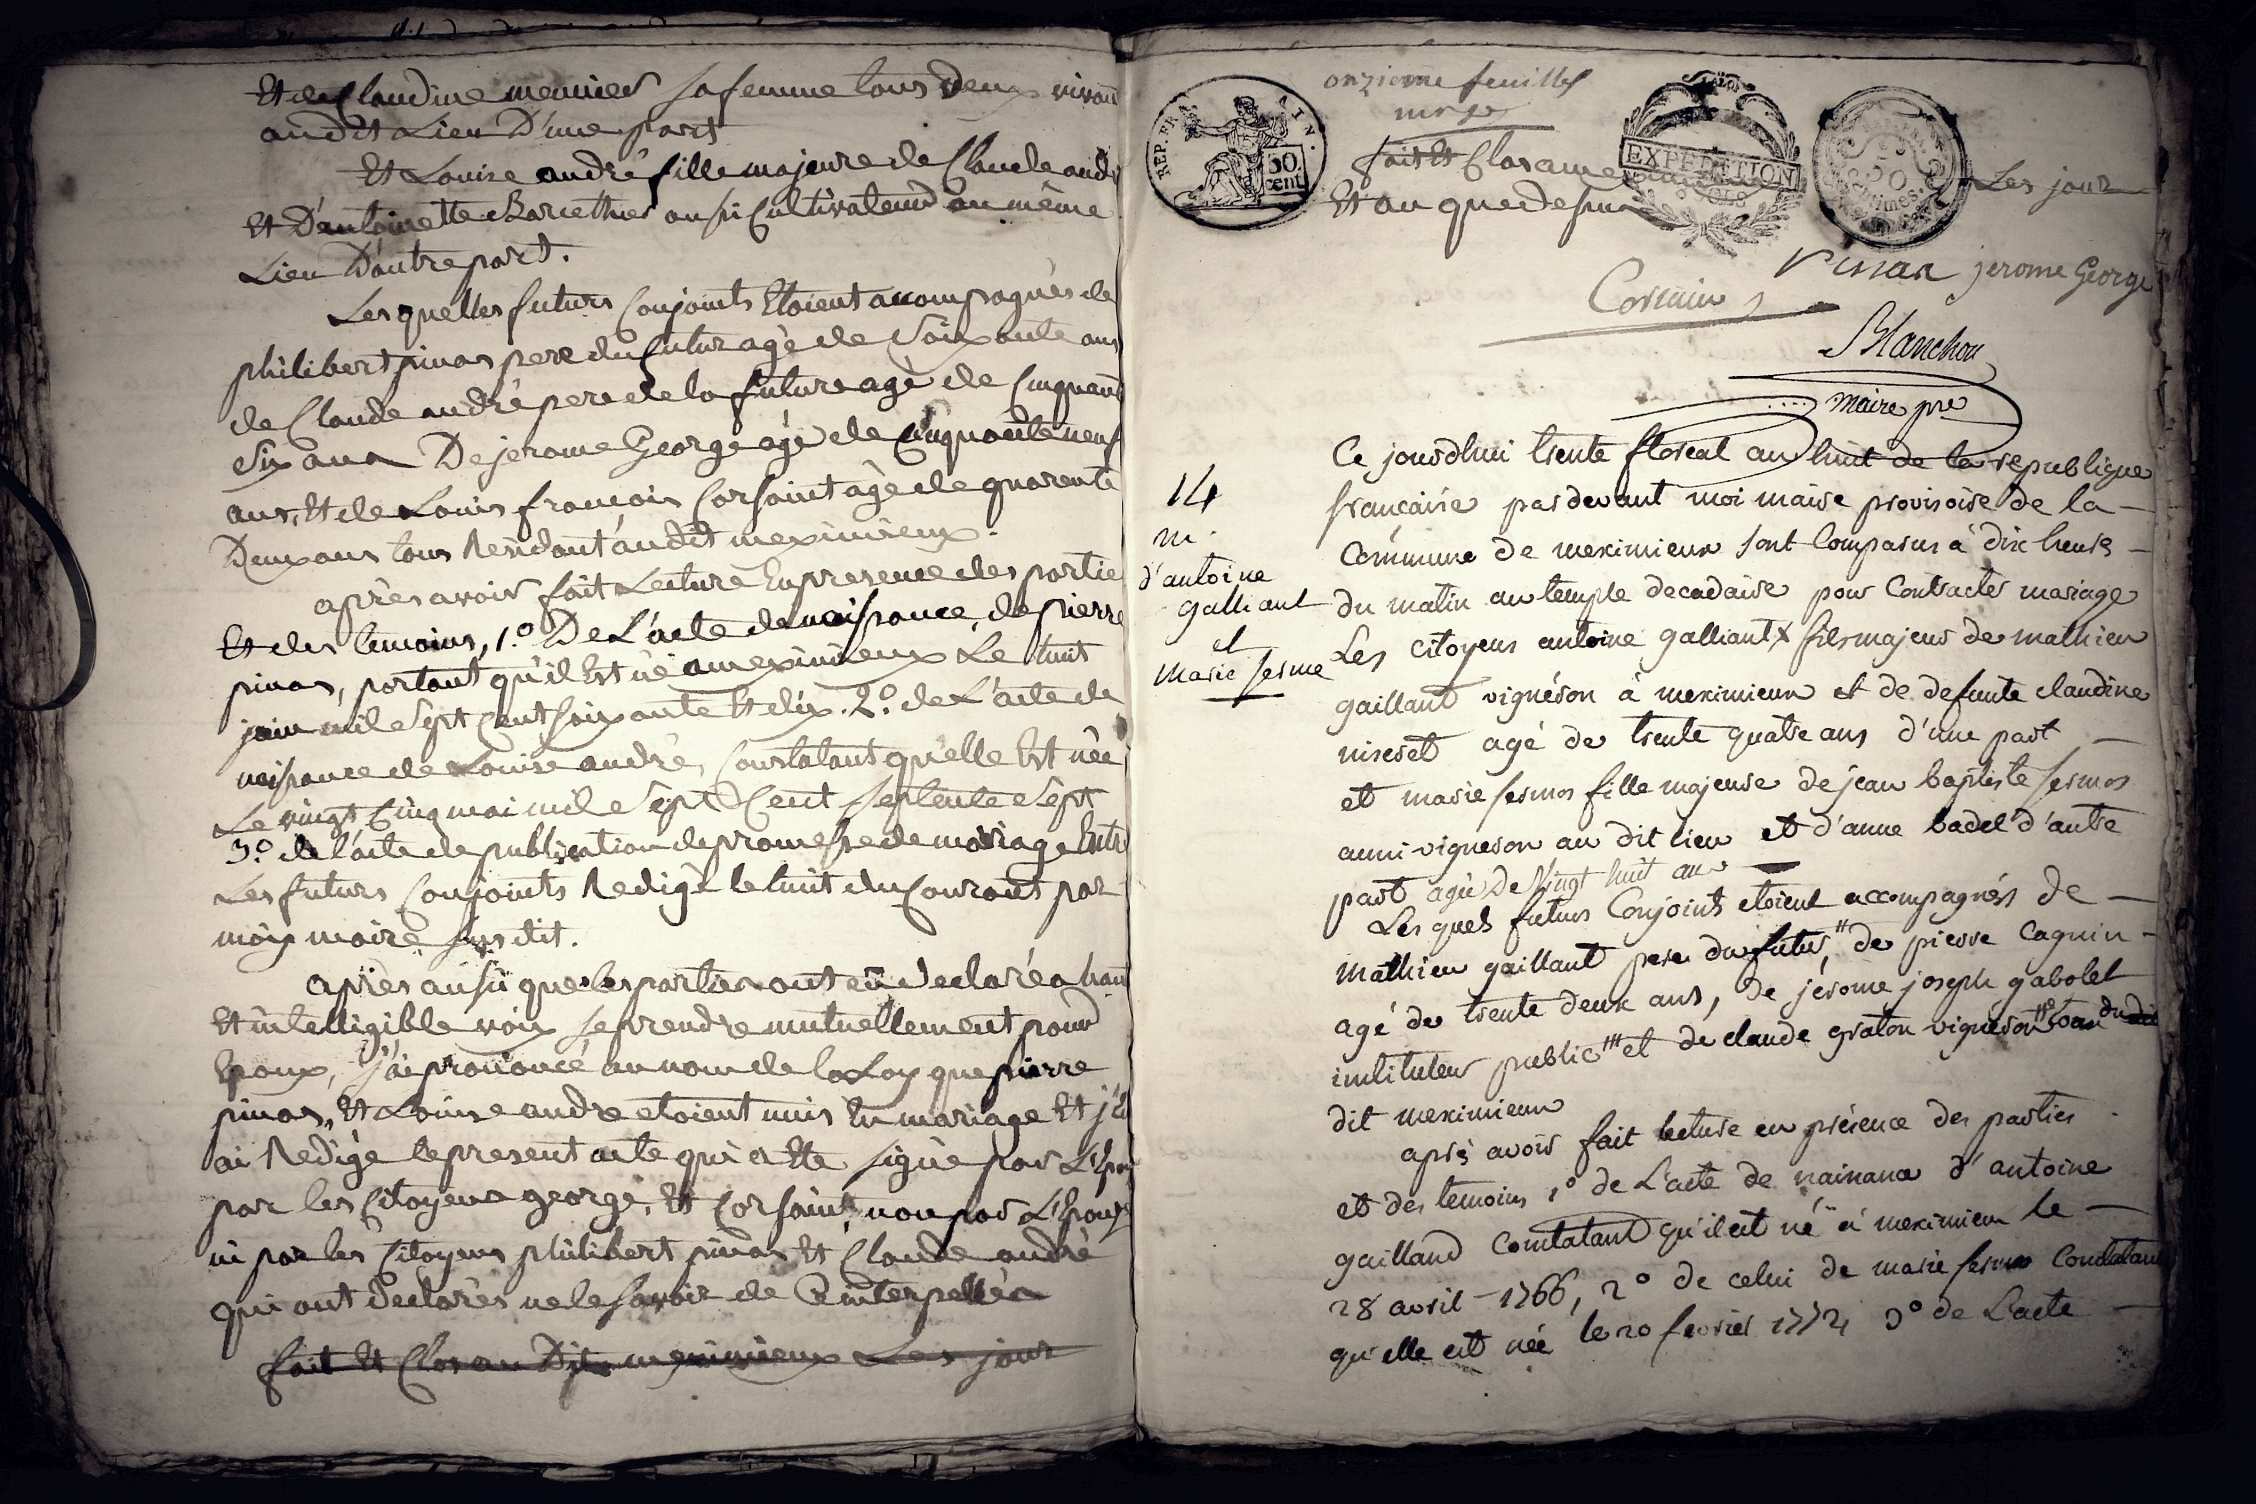 Et de Claudine meunier sa femme tous deux vivant
audit Lieu D'une part
Et Louise andré fille majeure de Claude andré
Et D'antoinette Barcethier aussi Cultivateurs au même
Lieu D'autre part.
Les quelles futurs Conjoints Etoient accompagnés de
philibert pinas pere du futur agé de Soixante ans
de Claude andré pere de la future agé de Cinquante
Six ans De jerome George agé de Cinquante neuf
ans, Et de Louis françois Corsaint agé de quarente
Deux ans tous Résidant audit meximieux.
après avoir fait Lecture En presence des partie
Et des temoins, 1.º De L'acte de naissance, de pierre
pinas, portant qu'il Est né a meximieux Le huit
juin mil Sept Cent soixante Et dix. 2.º de L'acte de
naissance de Louise andré, Constatant qu'elle Est née
Le vingt Cinq mai mil Sept Cent septente Sept
3.º de l'acte de publication de promesse de mariage Entre
Les futurs Conjoints Redigé le huit du Courant par
moy maire susdit.
après aussi que les parties ont eu declaré a haute
Et intelligible voix se prendre mutuellement pour
Epoux, j'ai prononcé au nom de la Loy que pierre
pinas, Et Louise andre etoient unis En mariage Et j'en
ai Redigé le present acte qui a Ete signé par L'Epoux
par les Citoyens george, Et Corsaint, non par L'Epouse
ni par les Citoyens philibert pinas Et Claude andré
qui ont declarés ne le savoir de Ce interpellés
fait Et Clos au Dit meximieux Les jour
onzieme feuillet
REP. FRA.
TIN.
50
cent
EXPEDITION
50
Centimes.
fait Et Clos a me
Les jour
Et an que dessus
jerome George
Corsain
Blanchon
maire pre
Ce jourd'hui trente floreal an huit de la republique
française pardevant moi maire provisoire de la
Commune de meximieux sont Comparus à dix heures
du matin au temple decadaire pour Contracter mariage
14
m.
d'antoine
galliant
et
marie serme
Les citoyens antoine galliant fils majeur de mathieu
gaillant vignéron à meximieux et de defunte claudine
niseret agé de trente quatre ans d'une part
et marie sermos fille majeure de jean baptiste sermos
aussi vigneron au dit lieu et d'anne badel d'autre
part agée De Vingt huit ans
Les quels futurs Conjoints etoient accompagnés de
mathieu gaillant pere du futur, de pierre caguin
agé de trente deux ans, de jérome joseph gabolet
instituteur public et de claude graton vignéron tous du dit
dit meximieux
après avoir fait lecture en présence des parties
et des temoins 1º de L'acte de naissance d'antoine
gailland Constatant qu'il est né à meximieux le
28 avril 1766, 2º de celui de marie sermos Constatant
qu'elle est née le 20 fevrier 1772, 3º de L'acte